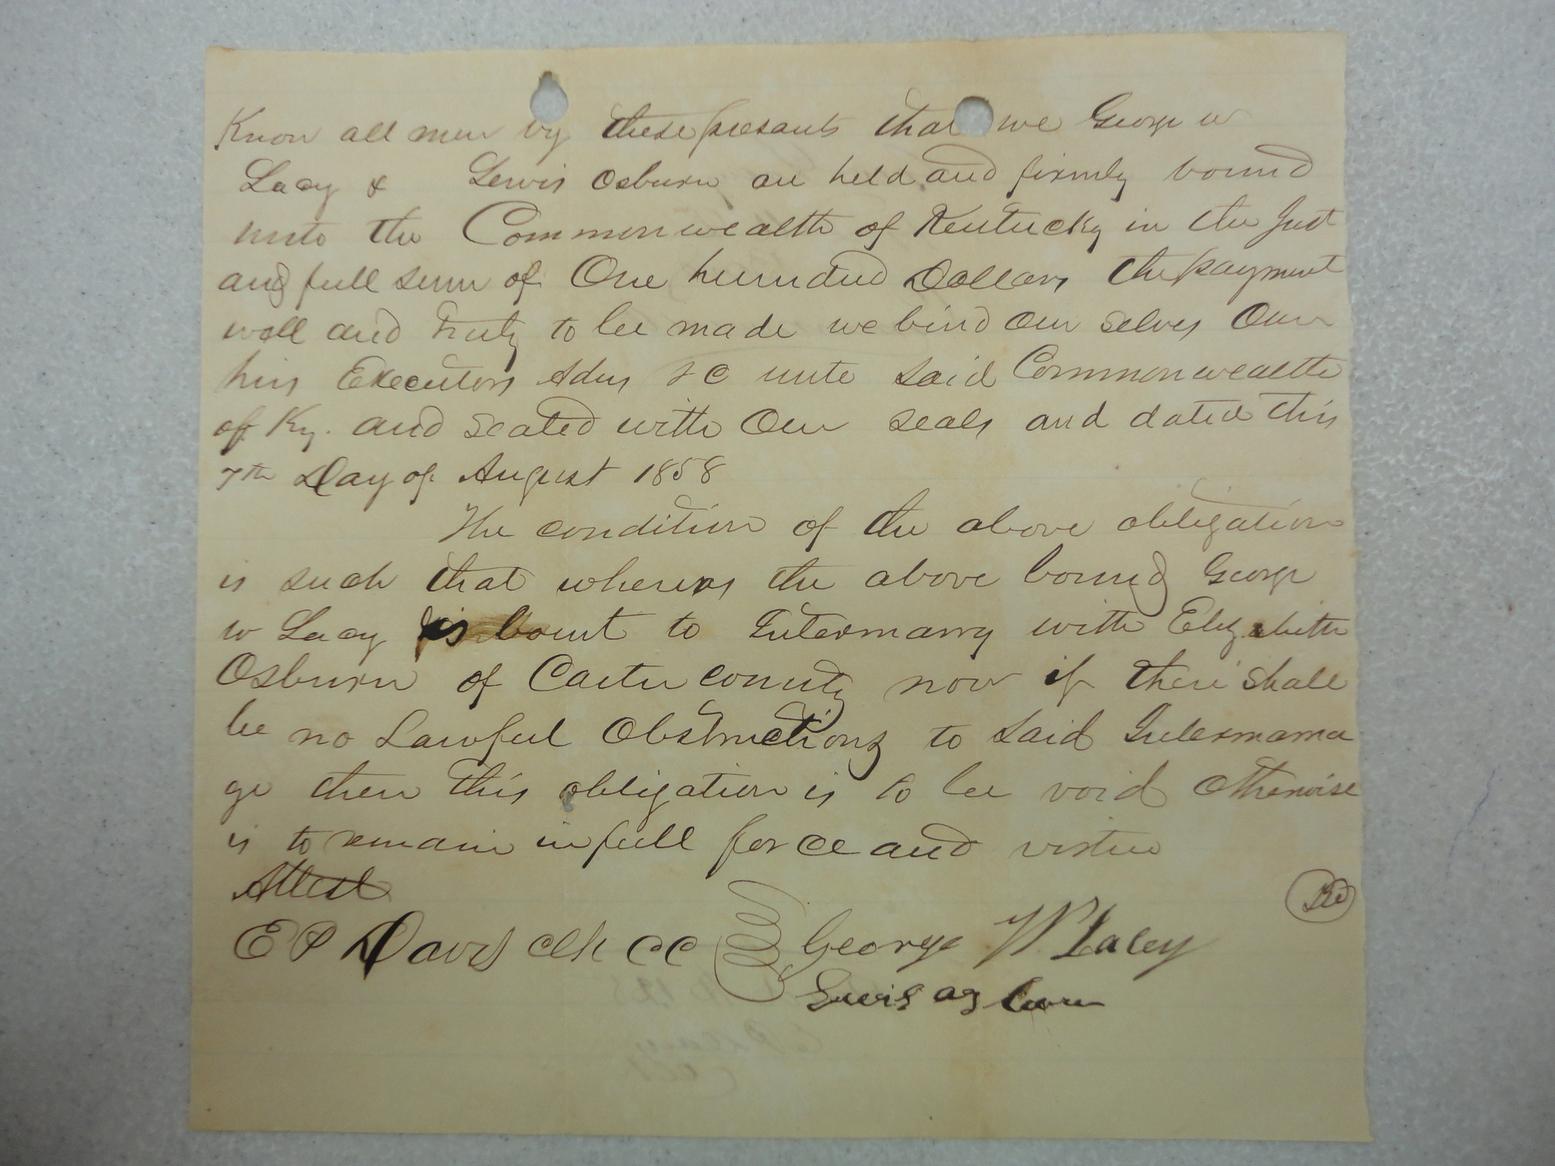 Know all men by these presants that we George w
Lacy & Lewis Osburn are held and firmly bound
unto the Commonwealth of Kentucky in the Just
and full sum of One hundred Dollars the payment
well and truly to be made we bind our selves Our
hirs Executors Adms &C unto said Commonwealth
of Ky. and sealed with Our seals and dated this
7th Day of August 1858
The condition of the above obligation
is such that whereas the above bound George
w Lacy is bout to Intermarry with Elizabeth
Osburn of Carter county now if there shall
be no Lawful Obstructions to said Intermarra
ge then this obligation is to be void otherwise
is to remain in full force and virtue
Attest
E P Davis clk CC George W Lacey
Lewis as burn